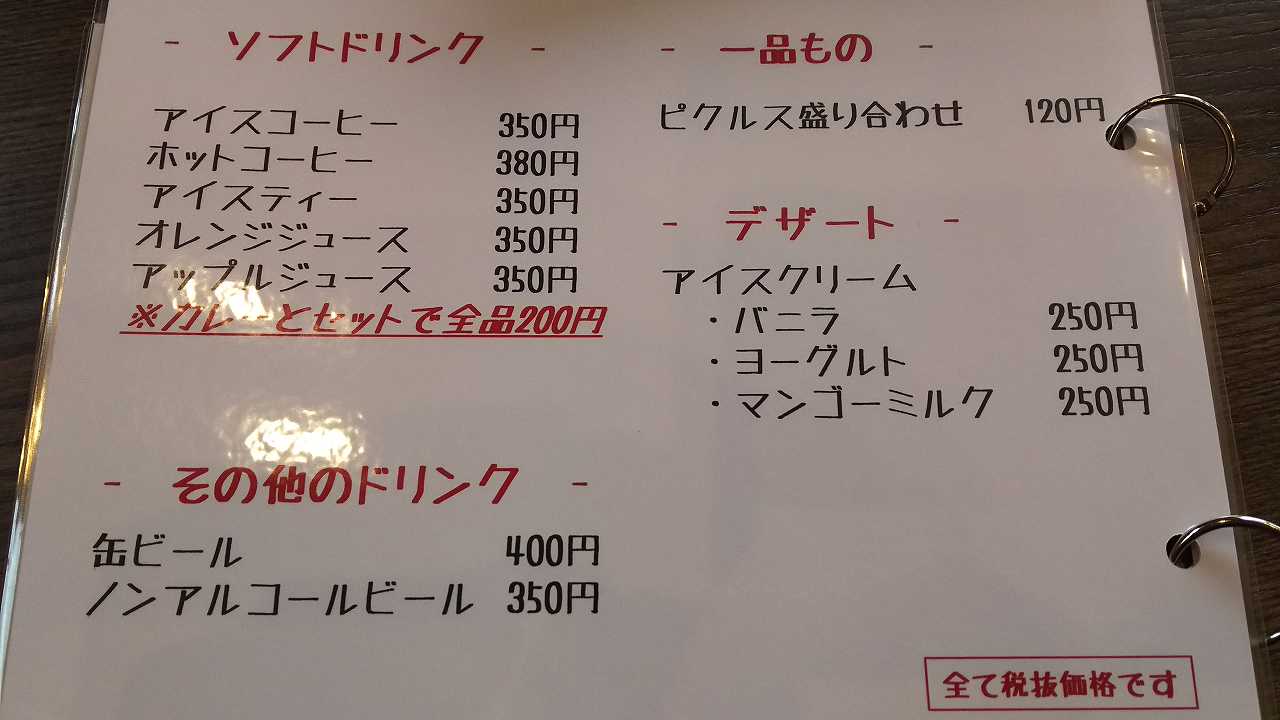 - ソフトドリンク -
アイスコーヒー 350円
ホットコーヒー 380円
アイスティー 350円
オレンジジュース 350円
アップルジュース 350円
※カレーとセットで全品200円
- その他のドリンク -
缶ビール 400円
ノンアルコールビール 350円
- 一品もの -
ピクルス盛り合わせ 120円
- デザート -
アイスクリーム
・バニラ 250円
・ヨーグルト 250円
・マンゴーミルク 250円
全て税抜価格です